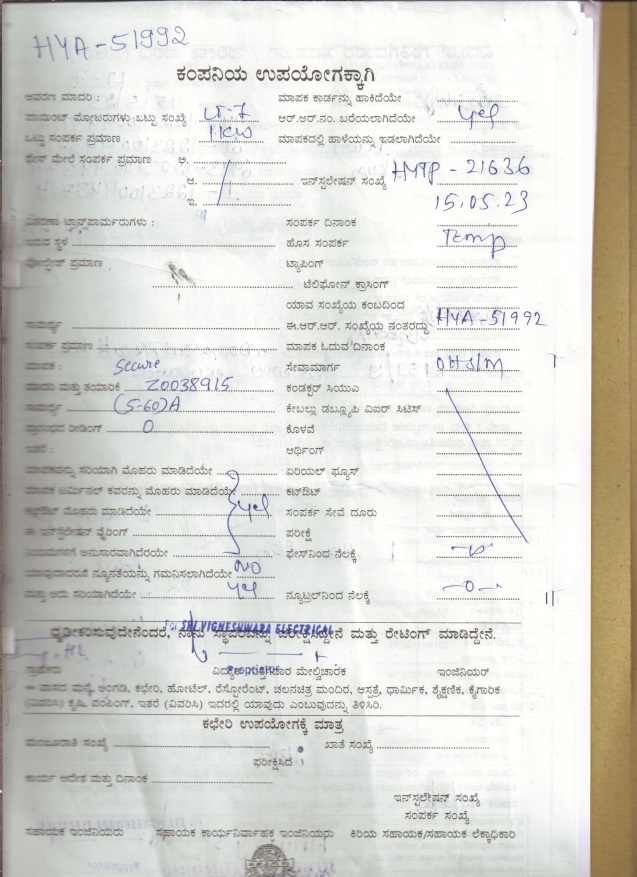 HYA-51992
ಕಂಪನಿಯ ಉಪಯೋಗಕ್ಕಾಗಿ
ಆವರಣ ಮಾದರಿ : ಮಾಪಕ ಕಾರ್ಡನ್ನು ಹಾಕಿದೆಯೇ
ಪಾಯಿಂಟ್ ಮೋಟರುಗಳು ಒಟ್ಟು ಸಂಖ್ಯೆ LT-7 ಆರ್.ಆರ್.ನಂ. ಬರೆಯಲಾಗಿದೆಯೇ yes
ಒಟ್ಟು ಸಂಪರ್ಕ ಪ್ರಮಾಣ 1KW ಮಾಪಕದಲ್ಲಿ ಹಾಳೆಯನ್ನು ಇಡಲಾಗಿದೆಯೇ
ಫೇಸ್ ಮೇಲೆ ಸಂಪರ್ಕ ಪ್ರಮಾಣ ಅ.
ಆ. ಇನ್‌ಸ್ಟಲೇಷನ್ ಸಂಖ್ಯೆ HMTP - 21636
ಇ. 15.05.23
ವಿತರಣಾ ಟ್ರಾನ್ಸ್‌ಫಾರ್ಮರುಗಳು : ಸಂಪರ್ಕ ದಿನಾಂಕ
ಇರುವ ಸ್ಥಳ ಹೊಸ ಸಂಪರ್ಕ Temp
ವೋಲ್ಟೇಜ್ ಪ್ರಮಾಣ ಟ್ಯಾಪಿಂಗ್
ಟೆಲಿಫೋನ್ ಕ್ರಾಸಿಂಗ್
ಯಾವ ಸಂಖ್ಯೆಯ ಕಂಬದಿಂದ
ಸಾಮರ್ಥ್ಯ ಈ.ಆರ್.ಆರ್. ಸಂಖ್ಯೆಯ ನಂತರದ್ದು HYA-51992
ಸಂಪರ್ಕ ಪ್ರಮಾಣ ಮಾಪಕ ಓದುವ ದಿನಾಂಕ
ಮಾಪಕ : Secure ಸೇವಾಮಾರ್ಗ
ಮಾದರಿ ಮತ್ತು ತಯಾರಿಕೆ Z0038915 ಕಂಡಕ್ಟರ್ ಸಿಯುಎ
ಸಾಮರ್ಥ್ಯ (5-60)A ಕೇಬಲ್ಲು ಡಬ್ಲ್ಯೂಪಿ ವಿಐರ್ ಸಿಟಿಸ್
ಪ್ರಾರಂಭದ ರೀಡಿಂಗ್ 0 ಕೊಳವೆ
ಅರ್ಥಿಂಗ್
ಮಾಪಕವನ್ನು ಸರಿಯಾಗಿ ಮೊಹರು ಮಾಡಿದೆಯೇ ಏರಿಯಲ್ ಫ್ಯೂಸ್
ಮಾಪಕ ಟರ್ಮಿನಲ್ ಕವರನ್ನು ಮೊಹರು ಮಾಡಿದೆಯೇ ಕಟ್‌ಔಟ್
ಕಟ್ಔಟ್ ಮೊಹರು ಮಾಡಿದೆಯೇ yes ಸಂಪರ್ಕ ಸೇವೆ ದೂರು
ಈ ಇನ್‌ಸ್ಟಲೇಷನ್ ವೈರಿಂಗ್ ಪರೀಕ್ಷೆ
ನಿಯಮಗಳಿಗೆ ಅನುಸಾರವಾಗಿದೆಯೇ ಫೇಸ್‌ನಿಂದ ನೆಲಕ್ಕೆ
ಯಾವುದಾದರೂ ನ್ಯೂನತೆಯನ್ನು ಗಮನಿಸಲಾಗಿದೆಯೇ NO
ಮತ್ತು ಅದು ಸರಿಯಾಗಿದೆಯೇ yes ನ್ಯೂಟ್ರಲ್‌ನಿಂದ ನೆಲಕ್ಕೆ -0-
For SRI VIGNESHWARA ELECTRICAL
ದೃಢೀಕರಿಸುವುದೇನೆಂದರೆ, ನಾನು ಸ್ಥಾವರವನ್ನು ಪರೀಕ್ಷಿಸಿದ್ದೇನೆ ಮತ್ತು ರೇಟಿಂಗ್ ಮಾಡಿದ್ದೇನೆ.
Proprietor
ಗ್ರಾಹಕರು ವಿದ್ಯುತ್ ಗುತ್ತಿಗೆದಾರ ಮೇಲ್ವಿಚಾರಕ ಇಂಜಿನಿಯರ್
— ವಾಸದ ಮನೆ, ಅಂಗಡಿ, ಕಛೇರಿ, ಹೋಟೆಲ್, ರೆಸ್ಟೋರೆಂಟ್, ಚಲನಚಿತ್ರ ಮಂದಿರ, ಆಸ್ಪತ್ರೆ, ಧಾರ್ಮಿಕ, ಶೈಕ್ಷಣಿಕ, ಕೈಗಾರಿಕ
(ವಿವರಿಸಿ) ಕೃಷಿ, ಪಂಪಿಂಗ್, ಇತರೆ (ವಿವರಿಸಿ) ಇದರಲ್ಲಿ ಯಾವುದು ಎಂಬುವುದನ್ನು ತಿಳಿಸಿರಿ.
ಕಛೇರಿ ಉಪಯೋಗಕ್ಕೆ ಮಾತ್ರ
ಮಂಜೂರಾತಿ ಸಂಖ್ಯೆ ಖಾತೆ ಸಂಖ್ಯೆ
ಪರೀಕ್ಷಿಸಿದೆ
ಕಾರ್ಯ ಆದೇಶ ಮತ್ತು ದಿನಾಂಕ
ಇನ್‌ಸ್ಟಲೇಷನ್ ಸಂಖ್ಯೆ
ಸಂಪರ್ಕ ಸಂಖ್ಯೆ
ಸಹಾಯಕ ಇಂಜಿನಿಯರು ಸಹಾಯಕ ಕಾರ್ಯನಿರ್ವಾಹಕ ಇಂಜಿನಿಯರು ಕಿರಿಯ ಸಹಾಯಕ/ಸಹಾಯಕ ಲೆಕ್ಕಾಧಿಕಾರಿ